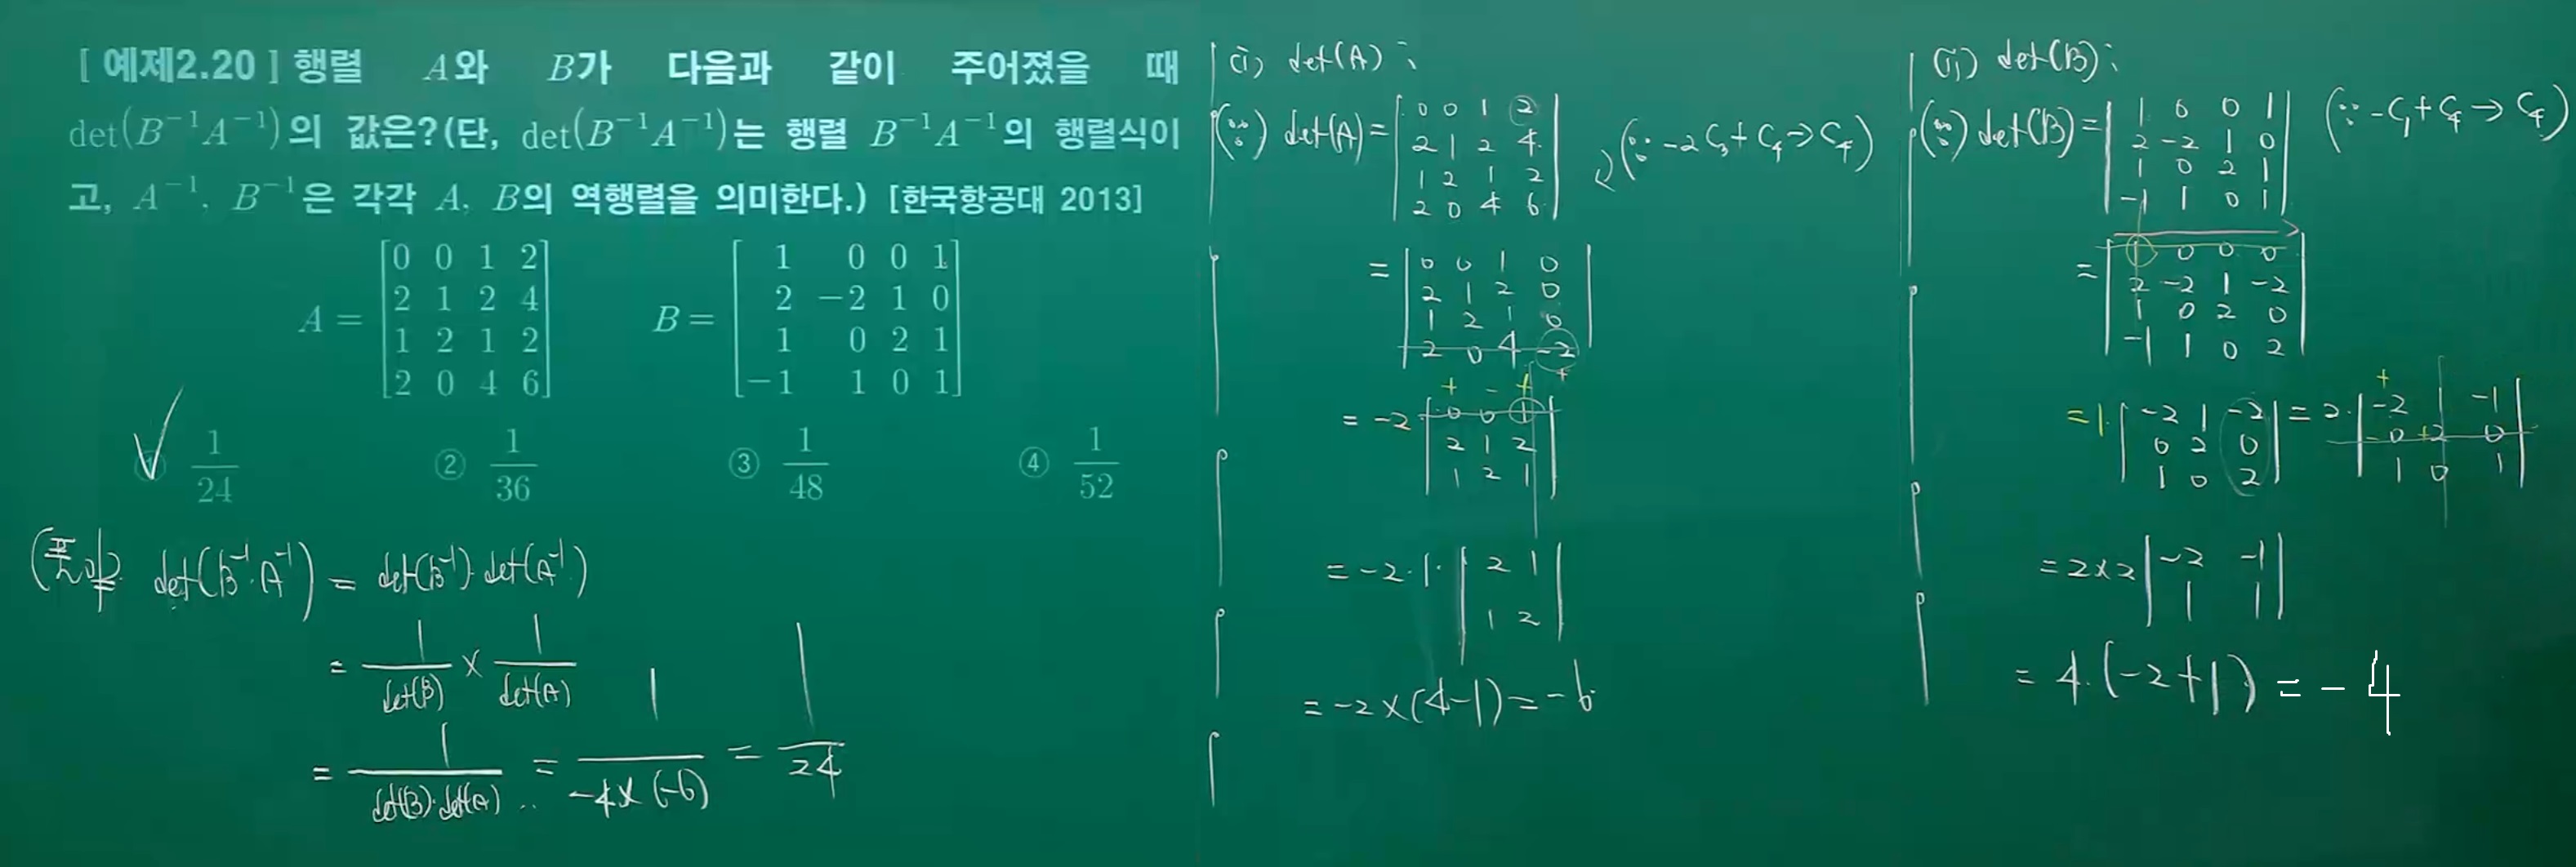 [ 예제2.20 ] 행렬 A와 B가 다음과 같이 주어졌을 때
det(B⁻¹A⁻¹)의 값은?(단, det(B⁻¹A⁻¹)는 행렬 B⁻¹A⁻¹의 행렬식이
고, A⁻¹, B⁻¹은 각각 A, B의 역행렬을 의미한다.) [한국항공대 2013]
A = [0 0 1 2; 2 1 2 4; 1 2 1 2; 2 0 4 6] B = [1 0 0 1; 2 -2 1 0; 1 0 2 1; -1 1 0 1]
① 1/24 ② 1/36 ③ 1/48 ④ 1/52
(풀이) det(B⁻¹·A⁻¹) = det(B⁻¹)·det(A⁻¹)
= 1/det(B) × 1/det(A)
= 1/(det(B)·det(A)) = 1/(-4×(-6)) = 1/24
(i) det(A) ;
(∵) det(A) = |0 0 1 2; 2 1 2 4; 1 2 1 2; 2 0 4 6| (∵ -2C₃ + C₄ → C₄)
= |0 0 1 0; 2 1 2 0; 1 2 1 0; 2 0 4 -2|
+ - + +
= -2 |0 0 1; 2 1 2; 1 2 1|
= -2·1·|2 1; 1 2|
= -2×(4-1) = -6
(ii) det(B) ;
(∵) det(B) = |1 0 0 1; 2 -2 1 0; 1 0 2 1; -1 1 0 1| (∵ -C₁ + C₄ → C₄)
= |1 0 0 0; 2 -2 1 -2; 1 0 2 0; -1 1 0 2|
= 1·|-2 1 -2; 0 2 0; 1 0 2| = 2·|-2 1 -1; 0 2 0; 1 0 1|
= 2×2 |-2 -1; 1 1|
= 4·(-2+1) = -4